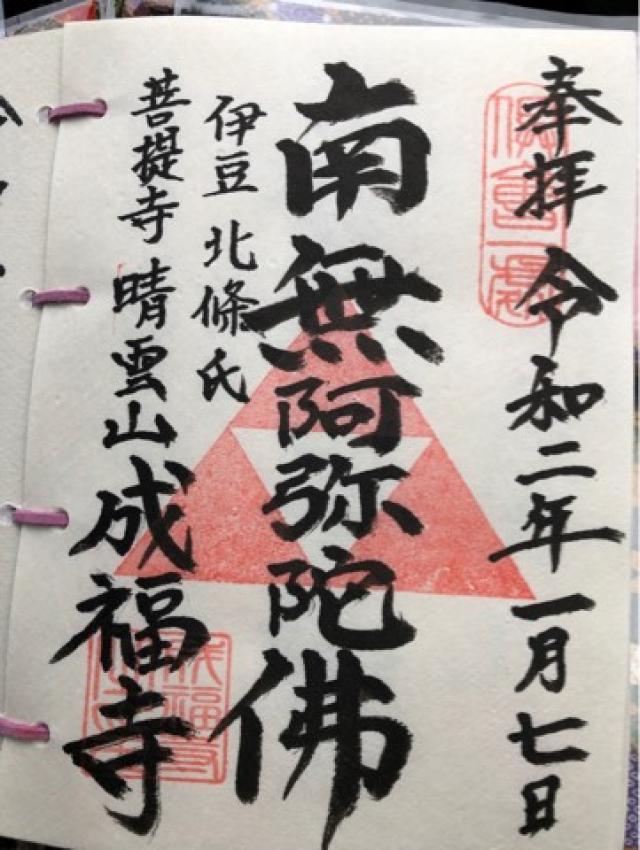 奉拝 令和二年一月七日
南無阿弥陀佛
伊豆 北條氏
菩提寺 晴雲山 成福寺
倶會一處